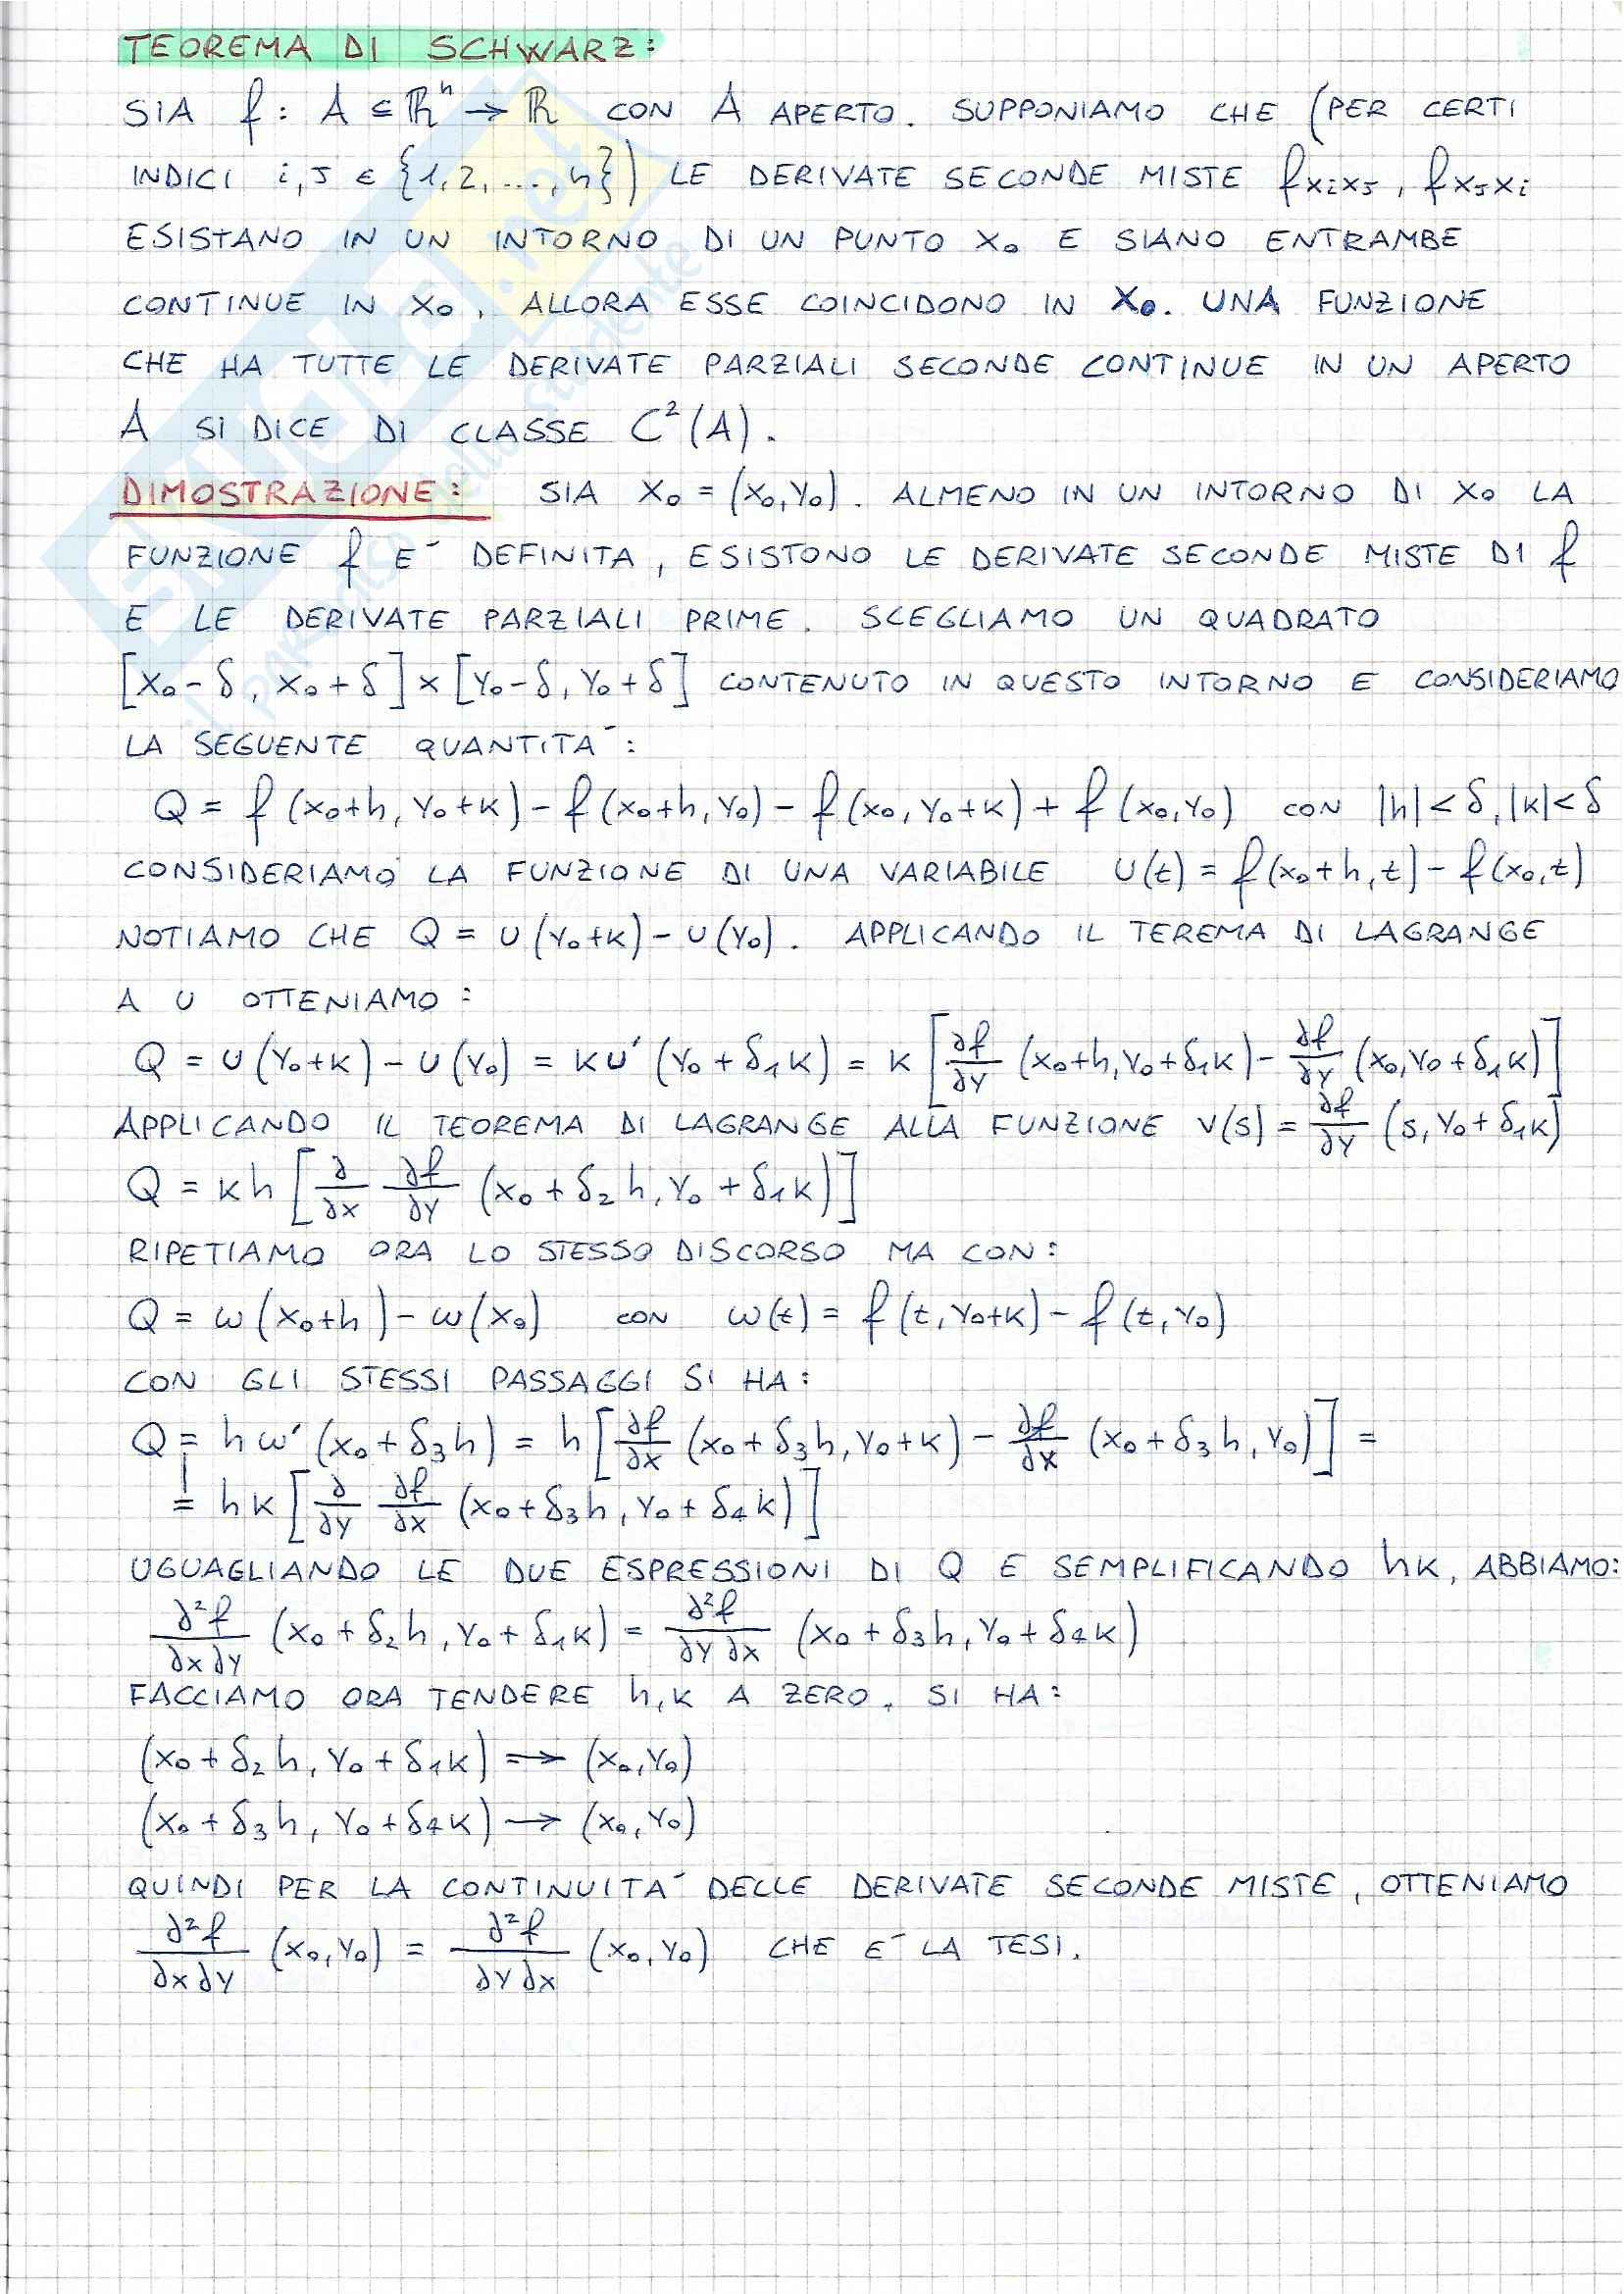 TEOREMA DI SCHWARZ:
SIA f: A ⊆ ℝⁿ → ℝ CON A APERTO. SUPPONIAMO CHE (PER CERTI
INDICI i, J ∈ {1, 2, ..., n}) LE DERIVATE SECONDE MISTE f xixJ, f xJxi
ESISTANO IN UN INTORNO DI UN PUNTO X₀ E SIANO ENTRAMBE
CONTINUE IN X₀, ALLORA ESSE COINCIDONO IN X₀. UNA FUNZIONE
CHE HA TUTTE LE DERIVATE PARZIALI SECONDE CONTINUE IN UN APERTO
A SI DICE DI CLASSE C²(A).
DIMOSTRAZIONE: SIA X₀ = (X₀, Y₀). ALMENO IN UN INTORNO DI X₀ LA
FUNZIONE f E´ DEFINITA, ESISTONO LE DERIVATE SECONDE MISTE DI f
E LE DERIVATE PARZIALI PRIME. SCEGLIAMO UN QUADRATO
[X₀-δ, X₀+δ] × [Y₀-δ, Y₀+δ] CONTENUTO IN QUESTO INTORNO E CONSIDERIAMO
LA SEGUENTE QUANTITA´:
Q = f(x₀+h, Y₀+K) - f(x₀+h, Y₀) - f(x₀, Y₀+K) + f(x₀, Y₀) CON |h| < δ, |K| < δ
CONSIDERIAMO LA FUNZIONE DI UNA VARIABILE U(t) = f(x₀+h, t) - f(x₀, t)
NOTIAMO CHE Q = U(Y₀+K) - U(Y₀). APPLICANDO IL TEREMA DI LAGRANGE
A U OTTENIAMO:
Q = U(Y₀+K) - U(Y₀) = KU´(Y₀+δ₁K) = K [∂f/∂Y (x₀+h, Y₀+δ₁K) - ∂f/∂Y (x₀, Y₀+δ₁K)]
APPLICANDO IL TEOREMA DI LAGRANGE ALLA FUNZIONE V(S) = ∂f/∂Y (S, Y₀+δ₁K)
Q = Kh [∂/∂x ∂f/∂Y (x₀+δ₂h, Y₀+δ₁K)]
RIPETIAMO ORA LO STESSO DISCORSO MA CON:
Q = ω(x₀+h) - ω(x₀) CON ω(t) = f(t, Y₀+K) - f(t, Y₀)
CON GLI STESSI PASSAGGI SI HA:
Q = hω´(x₀+δ₃h) = h [∂f/∂x (x₀+δ₃h, Y₀+K) - ∂f/∂x (x₀+δ₃h, Y₀)] =
= hK [∂/∂Y ∂f/∂x (x₀+δ₃h, Y₀+δ₄K)]
UGUAGLIANDO LE DUE ESPRESSIONI DI Q E SEMPLIFICANDO hK, ABBIAMO:
∂²f/∂x∂Y (x₀+δ₂h, Y₀+δ₁K) = ∂²f/∂Y∂x (x₀+δ₃h, Y₀+δ₄K)
FACCIAMO ORA TENDERE h, K A ZERO. SI HA:
(x₀+δ₂h, Y₀+δ₁K) → (x₀, Y₀)
(x₀+δ₃h, Y₀+δ₄K) → (x₀, Y₀)
QUINDI PER LA CONTINUITA´ DELLE DERIVATE SECONDE MISTE, OTTENIAMO
∂²f/∂x∂Y (x₀, Y₀) = ∂²f/∂Y∂x (x₀, Y₀) CHE E´ LA TESI.